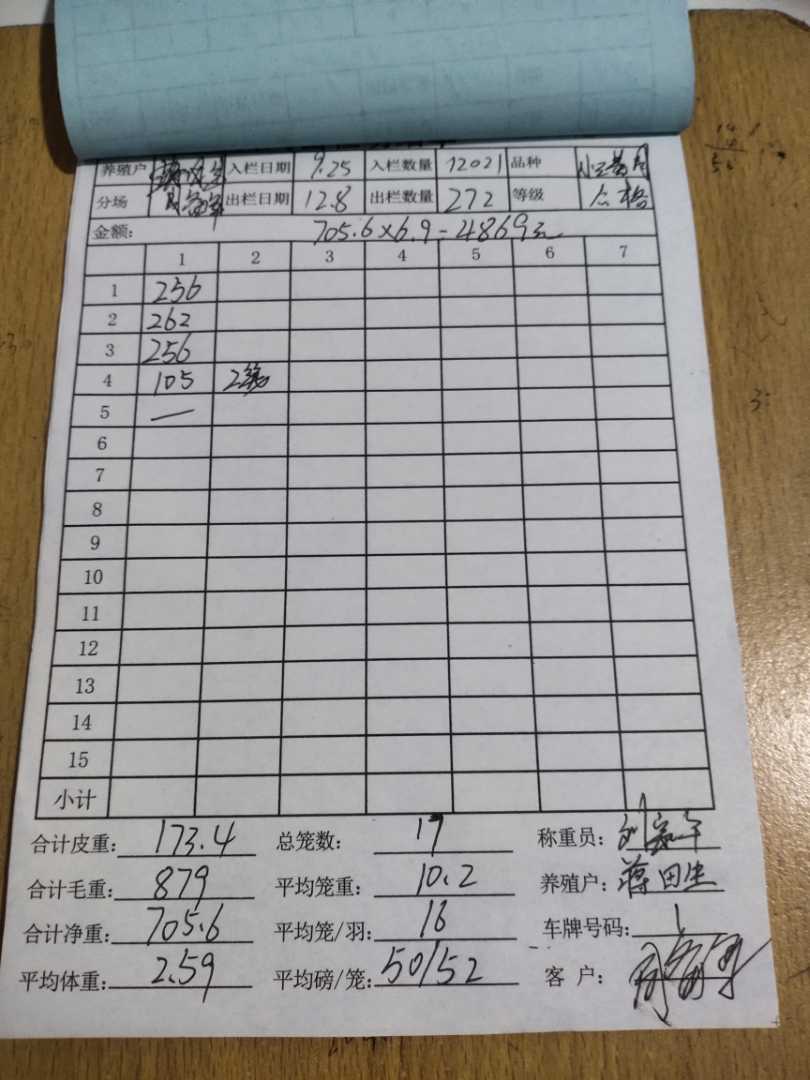 养殖户 入栏日期 9.25 入栏数量 12021 品种
分场 出栏日期 12.8 出栏数量 272 等级 合格
金额: 705.6×6.9=4869元
1 2 3 4 5 6 7
1 256
2 262
3 256
4 105 2笼
5 —
6
7
8
9
10
11
12
13
14
15
小计
合计皮重: 173.4 总笼数: 17 称重员:
合计毛重: 879 平均笼重: 10.2 养殖户: 蒋田生
合计净重: 705.6 平均笼/羽: 16 车牌号码:
平均体重: 2.59 平均磅/笼: 50/52 客 户: